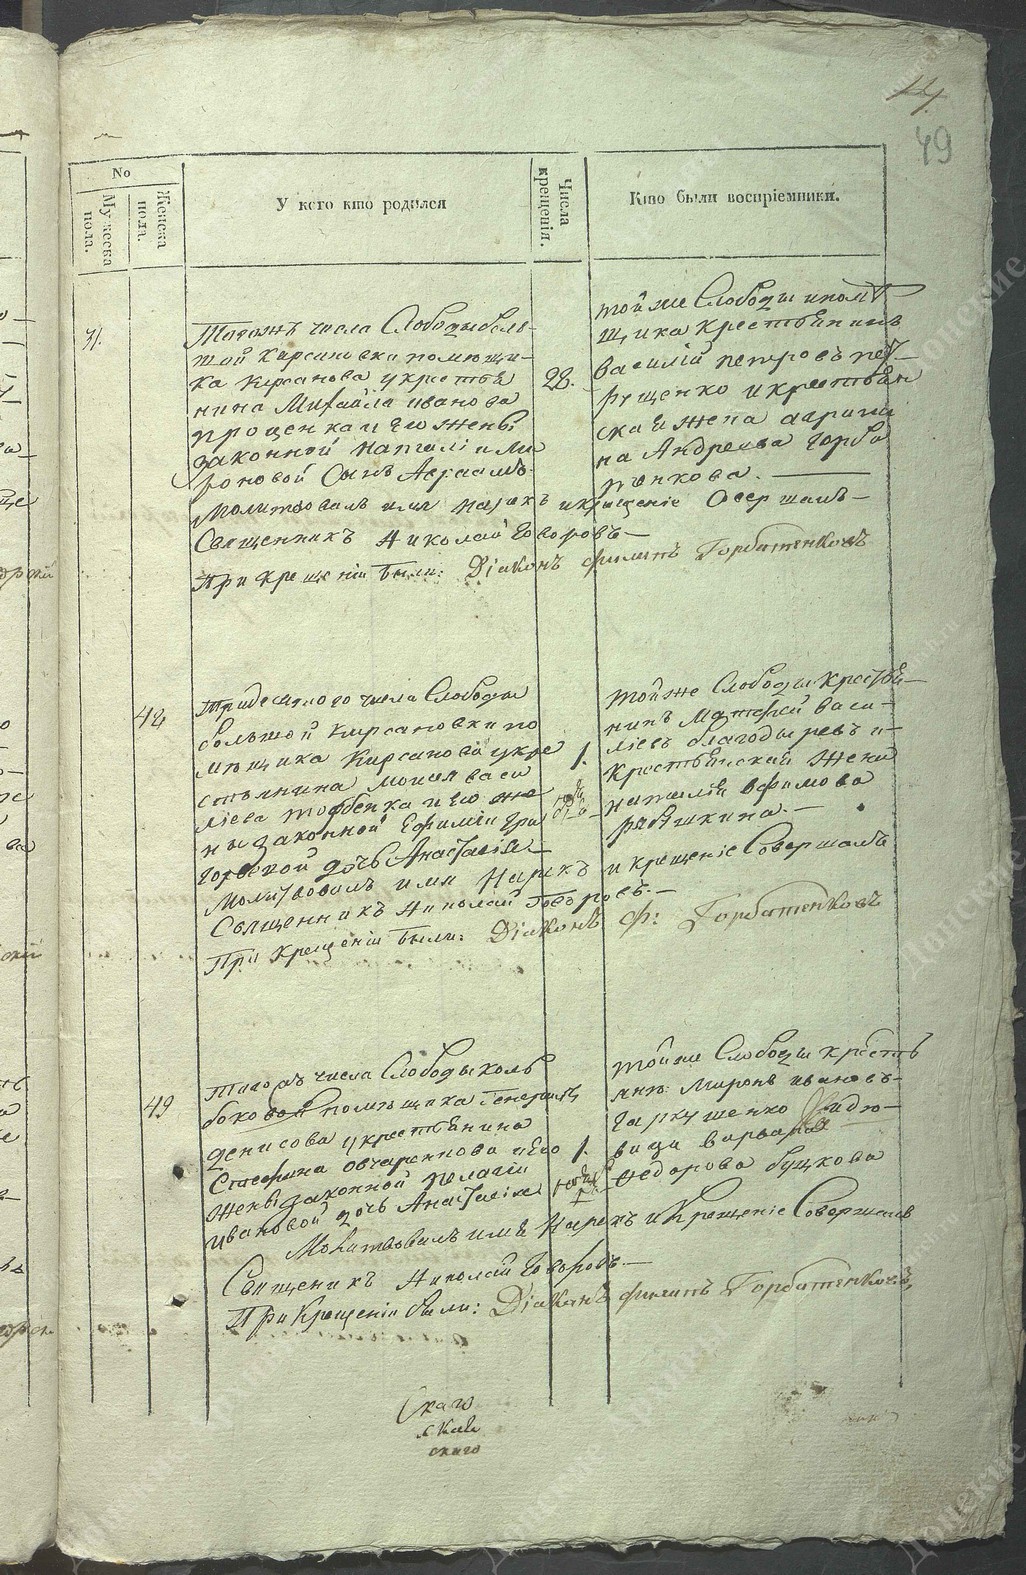 14.
49
No
Мужеска пола.
Женска пола.
У кого кто родился
Числа крещенія.
Кто были воспріемники.
31.
Тогожъ числа Слободы Боль-
шой Кирсановки помющи-
ка Кирсанова у крестья
нина Михайла иванова
проценка и Его жены
законной наталіи Ми
роновой Сынъ Авраамъ.
28.
той же Слободы помѣ
щика крестьянинъ
василій петровъ пет-
рущенко и крестьян
ская жена
на Андреева горба
тенкова. —
Молитвовалъ имя нарекъ и крещеніе Совершалъ —
Священникъ Николай Говоровъ —
При крещеніи были: Діаконъ филипъ Горбатенковъ
42
Тридесятого числа Слободы
большой кирсановки по
мѣщика Кирсанова у кре
стьянина Моисея васи
лієва торбенка и Его же
ны законной Ефиміи Гри
горьевой дочь Анастасія —
1.
той же Слободы Крестья —
нинъ Матфей васи —
ліевъ благодыревъ и —
крестьянская жена
наталія ефимова
рябишкина. —
Молитвовалъ имя Нарекъ и крещеніе Совершалъ
Священникъ Николай Говоровъ. —
При Крещеніи были: Діаконъ Ф: Горбатенковъ
49
Тогожъ числа Слободы коль
боковой помѣщика Генерала
денисова у крестьянина
Стефана овчаренкова и Его
жены законной пелагіи
ивановой дочь Анастасія
1.
той же Слободы кресть
янъ: Миронъ ивановъ-
Гаркушенко
вица варвара
Федорова буцкова
Молитвовалъ имя Нарекъ и Крещеніе Совершалъ
Священикъ Николай Говоровъ. —
При Крещеніи были: Діаконъ филипъ Горбатенковъ,
скаго
скаго